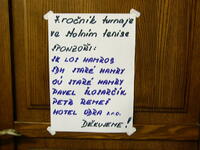 7. ročník turnaje
ve stolním tenise
SPONZOŘI:
SK LOS HAMROS
SDH STARÉ HAMRY
OÚ STARÉ HAMRY
PAVEL KOMARČÍK
PETR REMEŠ
HOTEL s.r.o.
DĚKUJEME!